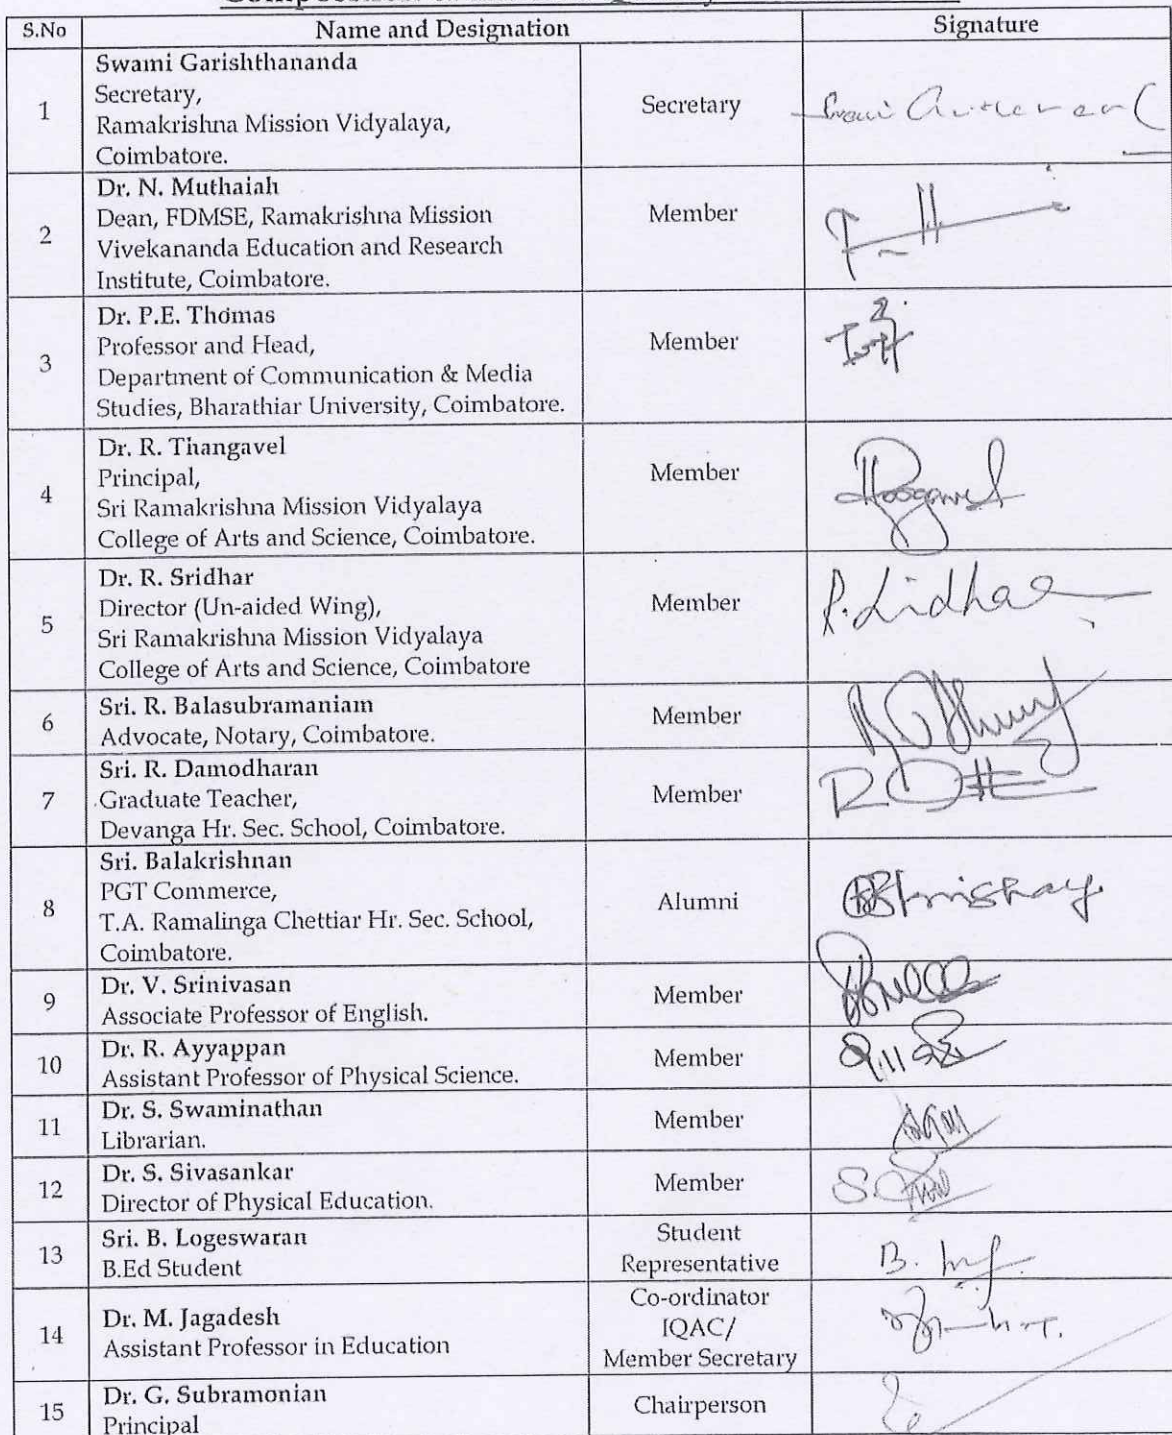 S.No Name and Designation Signature
1 Swami Garishthananda
Secretary,
Ramakrishna Mission Vidyalaya,
Coimbatore.
Secretary
2 Dr. N. Muthaiah
Dean, FDMSE, Ramakrishna Mission
Vivekananda Education and Research
Institute, Coimbatore.
Member
3 Dr. P.E. Thomas
Professor and Head,
Department of Communication & Media
Studies, Bharathiar University, Coimbatore.
Member
4 Dr. R. Thangavel
Principal,
Sri Ramakrishna Mission Vidyalaya
College of Arts and Science, Coimbatore.
Member
5 Dr. R. Sridhar
Director (Un-aided Wing),
Sri Ramakrishna Mission Vidyalaya
College of Arts and Science, Coimbatore
Member
6 Sri. R. Balasubramaniam
Advocate, Notary, Coimbatore.
Member
7 Sri. R. Damodharan
Graduate Teacher,
Devanga Hr. Sec. School, Coimbatore.
Member
8 Sri. Balakrishnan
PGT Commerce,
T.A. Ramalinga Chettiar Hr. Sec. School,
Coimbatore.
Alumni
9 Dr. V. Srinivasan
Associate Professor of English.
Member
10 Dr. R. Ayyappan
Assistant Professor of Physical Science.
Member
11 Dr. S. Swaminathan
Librarian.
Member
12 Dr. S. Sivasankar
Director of Physical Education.
Member
13 Sri. B. Logeswaran
B.Ed Student
Student
Representative
14 Dr. M. Jagadesh
Assistant Professor in Education
Co-ordinator
IQAC/
Member Secretary
15 Dr. G. Subramonian
Principal
Chairperson